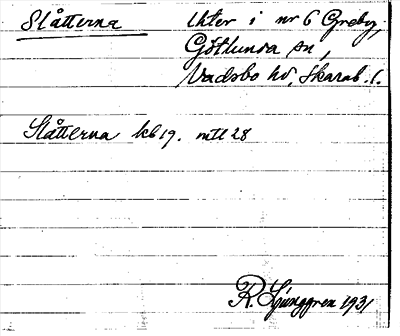 Slåtterna lkter i nr 6 Greby,
Götlunda sn,
Vadsbo hd, Skarab. l.
Slåtterna kb 19. mtl 28
R. Ljunggren 1931